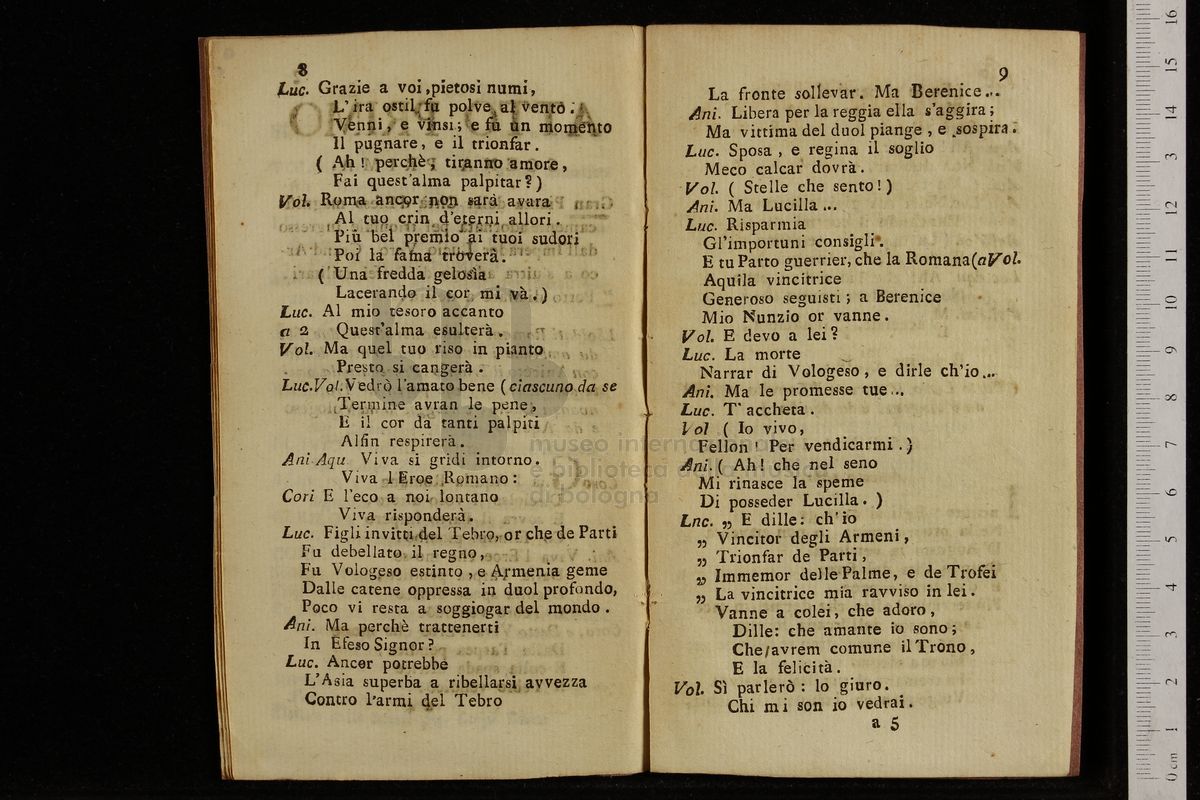 8
Luc. Grazie a voi, pietosi numi,
L'ira ostil fu polve al vento.
Venni, e vinsi; e fu un momento
Il pugnare, e il trionfar.
( Ah! perchè, tiranno amore,
Fai quest'alma palpitar?)
Vol. Roma ancor non sarà avara
Al tuo crin d'eterni allori.
Più bel premio ai tuoi sudori
Poi la fama troverà.
( Una fredda gelosìa
Lacerando il cor mi và.)
Luc. Al mio tesoro accanto
a 2 Quest'alma esulterà.
Vol. Ma quel tuo riso in pianto
Presto si cangerà.
Luc.Vol. Vedrò l'amato bene (ciascuno da se
Termine avran le pene,
E il cor da tanti palpiti
Alfin respirerà.
Ani Aqu Viva si gridi intorno.
Viva l'Eroe Romano:
Cori E l'eco a noi lontano
Viva risponderà.
Luc. Figli invitti del Tebro, or che de Parti
Fu debellato il regno,
Fu Vologeso estinto, e Armenia geme
Dalle catene oppressa in duol profondo,
Poco vi resta a soggiogar del mondo.
Ani. Ma perchè trattenerti
In Efeso Signor?
Luc. Ancor potrebbe
L'Asia superba a ribellarsi avvezza
Contro l'armi del Tebro
9
La fronte sollevar. Ma Berenice...
Ani. Libera per la reggia ella s'aggira;
Ma vittima del duol piange, e sospira.
Luc. Sposa, e regina il soglio
Meco calcar dovrà.
Vol. ( Stelle che sento!)
Ani. Ma Lucilla...
Luc. Risparmia
Gl'importuni consigli.
E tu Parto guerrier, che la Romana(aVol.
Aquila vincitrice
Generoso seguisti; a Berenice
Mio Nunzio or vanne.
Vol. E devo a lei?
Luc. La morte
Narrar di Vologeso, e dirle ch'io...
Ani. Ma le promesse tue...
Luc. T'accheta.
Vol ( Io vivo,
Fellon! Per vendicarmi.)
Ani. ( Ah! che nel seno
Mi rinasce la speme
Di posseder Lucilla. )
Lnc. „ E dille: ch'io
„ Vincitor degli Armeni,
„ Trionfar de Parti,
„ Immemor delle Palme, e de Trofei
„ La vincitrice mia ravviso in lei.
Vanne a colei, che adoro,
Dille: che amante io sono;
Che avrem comune il Trono,
E la felicità.
Vol. Sì parlerò: lo giuro.
Chi mi son io vedrai.
a 5